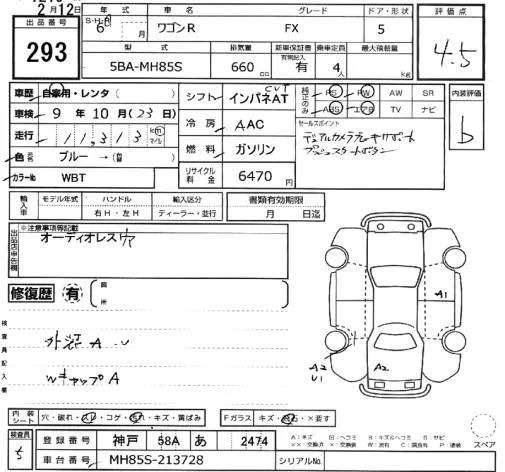 2月12日
出品番号 293
年式 S・H・R 6 月
車名 ワゴンR
グレード FX
ドア・形状 5
評価点 4.5
型式 5BA-MH85S
排気量 660 cc
新車保証書 有無記入 有
乗車定員 4人
最大積載量 kg
車歴 自家用・レンタ ( )
車検 9 年 10 月 (23 日)
走行 11,313 km マイル
色 ブルー → (替 )
カラーNo WBT
シフト インパネAT CVT
冷房 AAC
燃料 ガソリン
リサイクル料金 6470円
純正のみ PS PW AW SR
ABS エアB TV ナビ
セールスポイント
デュアルカメラブレーキサポート
プッシュスタートボタン
内装評価 b
輸入車 モデル年式 ハンドル 右H・左H 輸入区分 ディーラー・並行
書類有効期限 月 日迄
出品店申告欄 ※注意事項等記載
オーディオレス穴
修復歴 有 箇所
検査員記入欄
外装 A
Wキャップ A
A1
A2
U1
A2
内装シート 穴・破れ・スレ・コゲ・汚れ・キズ・黄ばみ
Fガラス キズ・飛石・×要す
検査員
登録番号 神戸 58A あ 2474
車台番号 MH85S-213728
シリアルNo.
スペア